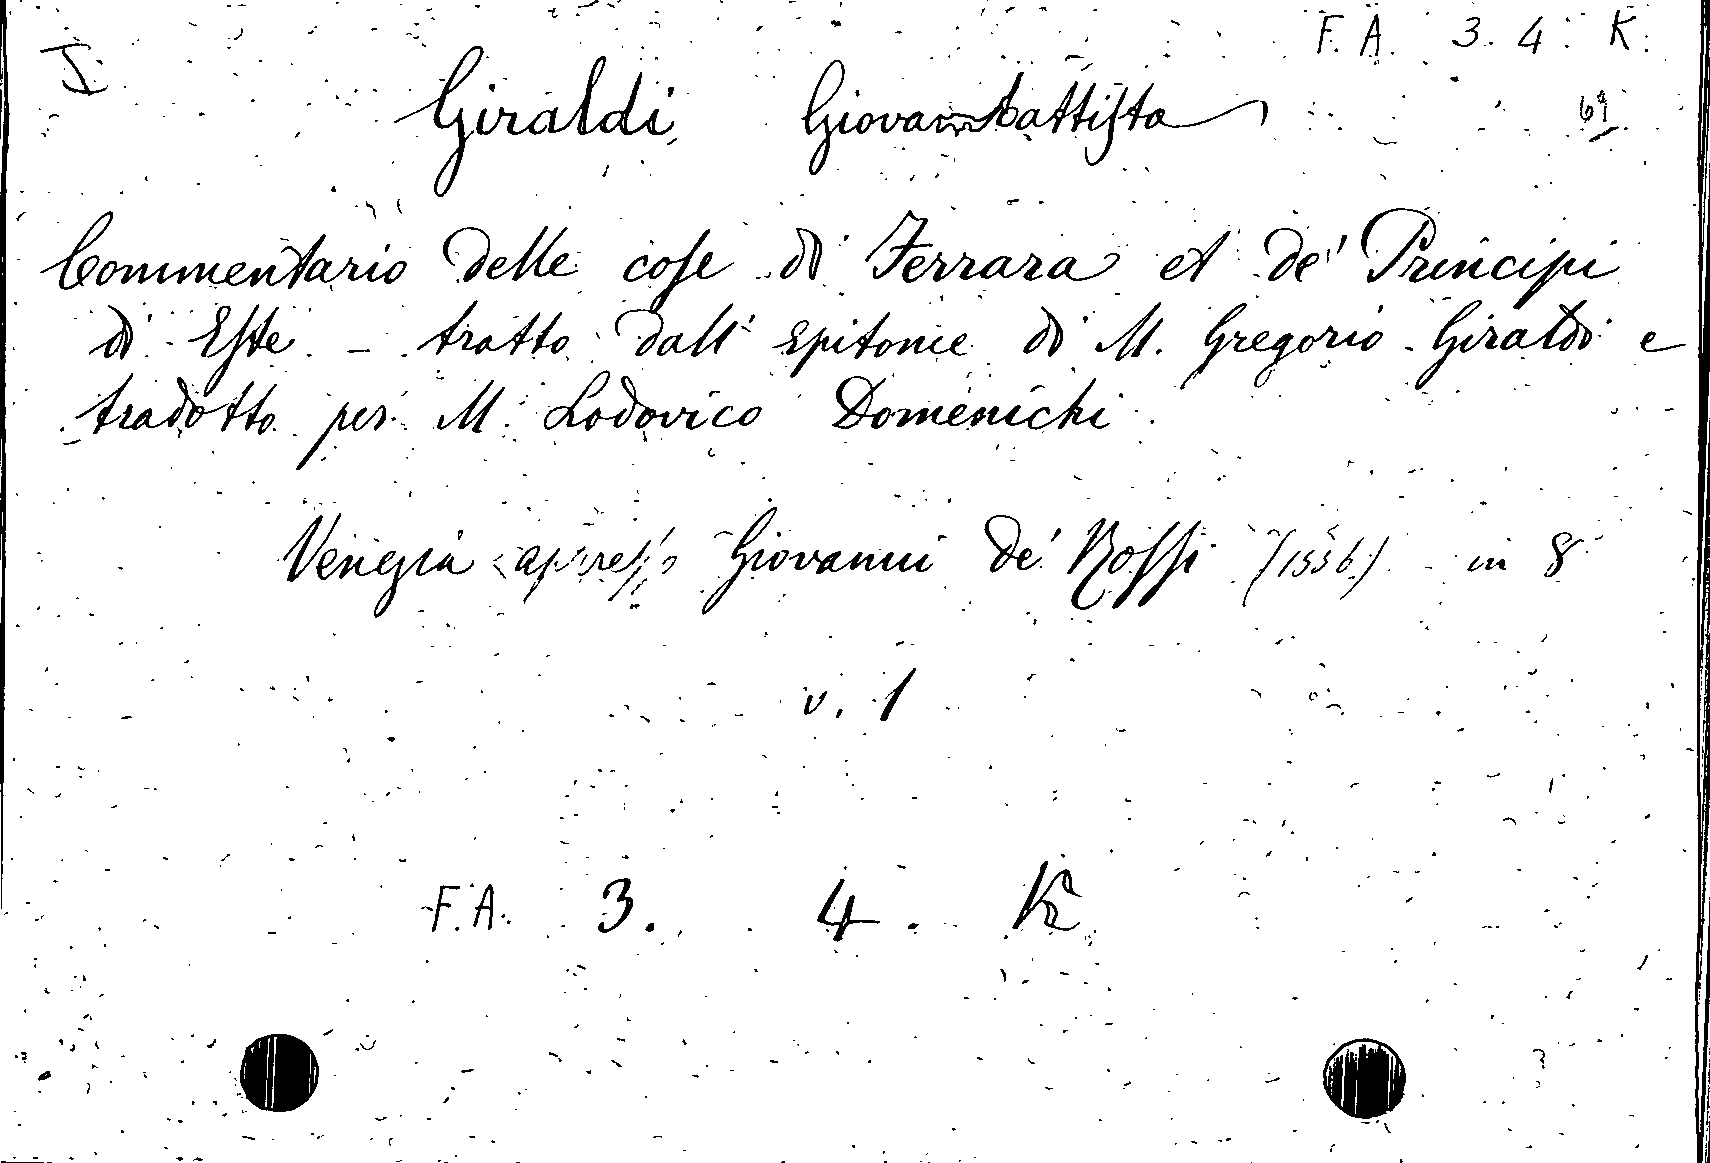 F. A. 3. 4. K.
I
Giraldi, Giovambattista
69
Commentario delle cose di Ferrara et de' Principi
di Este - tratto dall' epitome di M. Gregorio Giraldi e
tradotto per M. Lodovico Domenichi.
Venezia appresso Giovanni de' Rossi (1556.) in 8
v. 1
F. A. 3. 4. K